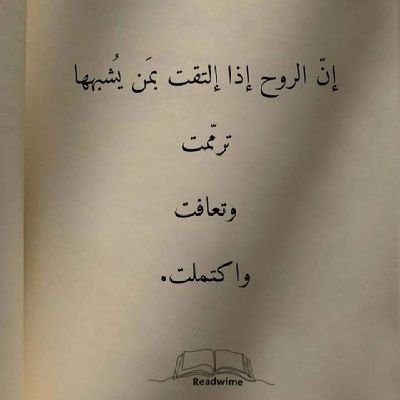 إنّ الروح إذا إلتقت بمَن يُشبهها
ترمّمت
وتعافت
واكتملت.
Readwime